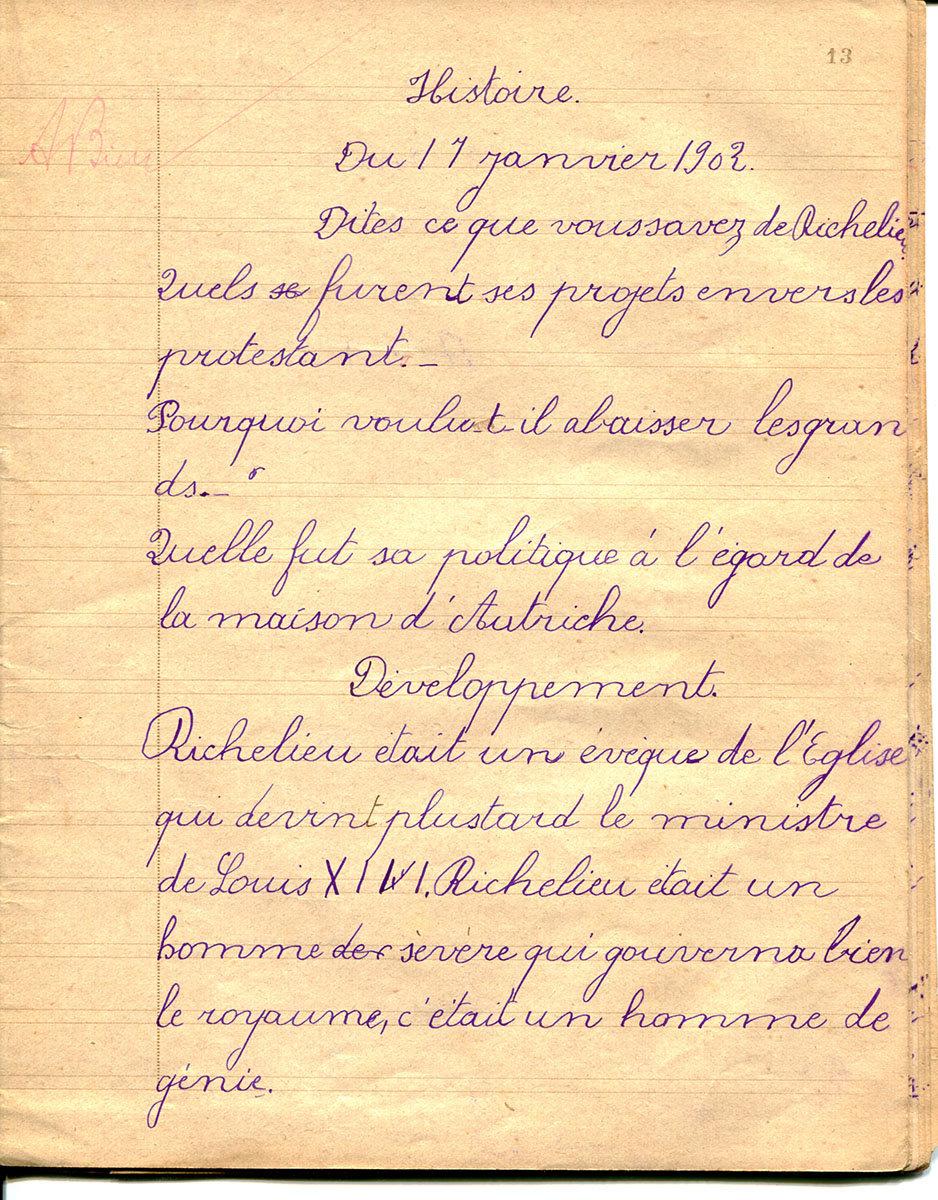 13
Histoire.
A Bien
Du 17 janvier 1902.
Dites ce que vous savez de Richelieu.
Quels se furent ses projets envers les
protestant. _
Pourquoi voulut-il abaisser les gran
ds. _
Quelle fut sa politique à l'égard de
la maison d'Autriche.
Développement.
Richelieu était un évêque de l'Eglise
qui devint plus tard le ministre
de Louis XIII. Richelieu était un
homme der sévère qui gouverna bien
le royaume, c'était un homme de
génie.